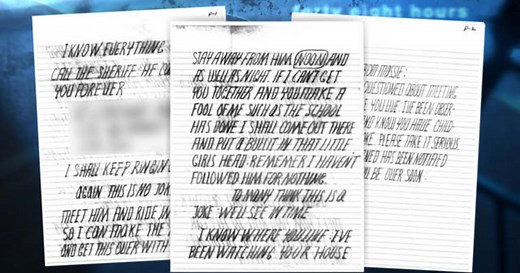 forty eight hours
P-1
I KNOW EVERYTHING
CALL THE SHERIFF HE
YOU FOREVER
I SHALL KEEP RINGIN
AGAIN THIS IS NO JOK
MEET HIM AND RIDE IN
SO I CAN TAKE THE
AND GET THIS OVER WITH
STAY AWAY FROM HIM NOON AND
AS WELL AS NIGHT IF I CAN'T GET
YOU TOGETHER AND YOU MAKE A
FOOL OF ME SUCH AS THE SCHOOL
HAS DONE I SHALL COME OUT THERE
AND PUT A BULLIT IN THAT LITTLE
GIRLS HEAD. REMEMBER I HAVEN'T
FOLLOWED HIM FOR NOTHING.
TO MANY THINK THIS IS A
JOKE WE'LL SEE IN TIME
I KNOW WHERE YOU LIVE I'VE
BEEN WATCHING YOUR HOUSE
P-2
MASSIE:
QUESTIONED ABOUT MEETING
E YOU LIVE: I'VE BEEN OBSER-
ND KNOW YOU HAVE CHILD-
KE. PLEASE TAKE IT SERIOUS.
NED HAS BEEN NOTIFIED
BE OVER SOON.